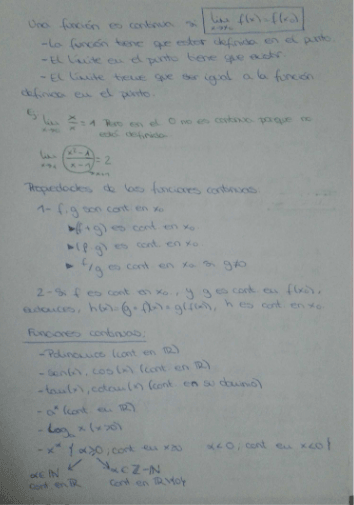 Una función es continua si lim x→x₀ f(x) = f(x₀)
- La función tiene que estar definida en el punto.
- El límite en el punto tiene que existir.
- El límite tiene que ser igual a la función
definida en el punto.
lim x→0 x/x = 1 Pero en el 0 no es continua porque no
está definida
lim x→1 x²-1/x-1 = 2
Propiedades de las funciones continuas
1- f, g son cont. en x₀
(f+g) es cont. en x₀
(f·g) es cont. en x₀
f/g es cont. en x₀ si g≠0
2- Si f es cont. en x₀, y g es cont. en f(x₀),
entonces, h(x)=(g∘f)(x)=g(f(x)), h es cont. en x₀
Funciones continuas:
- Polinomios (cont. en ℝ)
- sen(x), cos(x) (cont. en ℝ)
- tan(x), cotan(x) (cont. en su dominio)
- aˣ (cont. en ℝ)
- Log x (x>0)
- α≥0, cont. en α<0, cont. en
α∈ℕ α∈ℤ-ℕ
cont. en ℝ cont. en